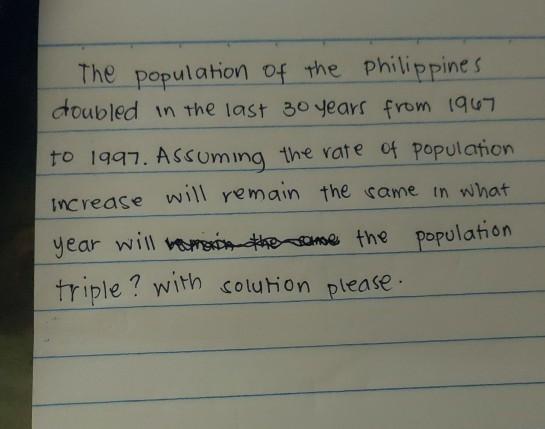 The population of the Philippines
doubled in the last 30 years from 1967
to 1997. Assuming the rate of population
increase will remain the same in what
year will the population
triple? with solution please.